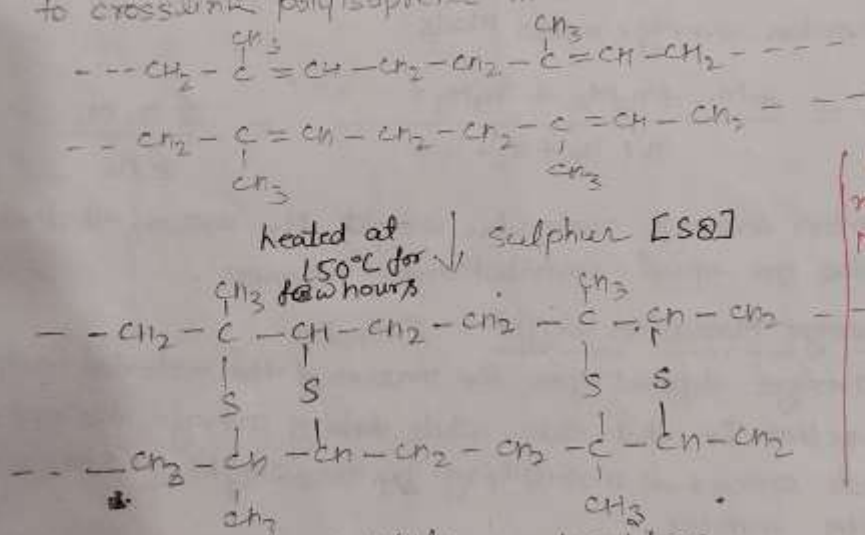 to crosslink polyisoprene
CH3 CH3
- - - CH2 - C = CH - CH2 - CH2 - C = CH - CH2 - - - -
- - CH2 - C = CH - CH2 - CH2 - C = CH - CH2 - - -
CH3 CH3
heated at sulpher [S8]
150°C for
few hours
CH3 CH3
- - CH2 - C - CH - CH2 - CH2 - C - CH - CH2 - -
S S S S
- - - CH3 - CH - CH - CH2 - CH2 - C - CH - CH2
CH3 CH3